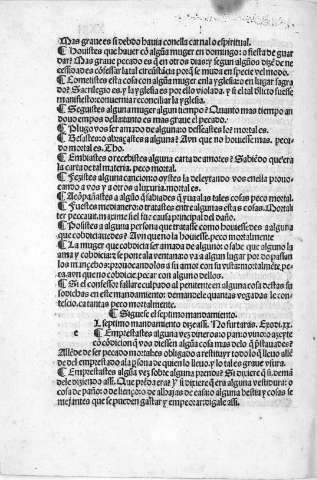 Mas graue es si debdo hauia con ella carnal o espiritual.
¶ Houistes que hauer cõ algũa muger en domingo: o fiesta de guar
dar? Mas graue pecado es q̃ en otros dias: y segun algũos dizẽ de ne
cessidad es cõfessar la tal circũstãcia porq̃ se muda en specie vel modo.
¶ Cometistes esta cosa con algũa muger enla yglesia: o en lugar sagra
do? Sacrilegio es. y la yglesia es por ello violada. y si el tal dlicto fuesse
manifiesto conuernia reconciliar la yglesia.
¶ Seguistes alguna muger algun tiempo? Quanto mas tiempo an
douo empos della tanto es mas graue el pecado.
¶ Plugo vos ser amado de alguna: o desseastes lo? mortal es.
¶ Besastes o abraçastes a alguna? Avn que no houiesse mas. peca
do mortal es. Tho.
¶ Embiastes o recebistes alguna carta de amores? Sabiẽdo que era
la carta de tal materia. peco mortal.
¶ Fezistes alguna cancion o oystes la deleytando vos enella prouo
cando a vos y a otros a luxuria. mortal es.
¶ Acõpañastes a algũo q̃ sabiades q̃ yua a las tales cosas peco mortal.
¶ Fuestes medianero: o tratastes entre algunas estas cosas. Mortali
ter peccauit. maxime si el fue causa principal del daño.
¶ Posistes a alguna persona que tratasse como houiessedes a alguna
que cobdiciauedes? Avn que no la houiesse. peco mortalmente
¶ La muger que cobdicia ser amada de alguno: o sabe que alguno la
ama y cobdicia: z se pone ala ventana o va a algun lugar por do passan
los mãcebos: z prouocandolos a si amor con su vista: mortalmẽte pe
ca. avn que no cobdicie. pecar con alguno dellos.
¶ Si el confessor fallare culpado al penitente en alguna cosa destas su
sodichas en este mandamiento: demandele quantas vegadas le con
tescio. ca tantas peco mortalmente.
¶ Siguese el septimo mandamiento.
L septimo mandamiento dize assi. No furtarás. Exodi. xx.
e ¶ Emprestastes alguna vez dineros: o pan: o vino: o azeyte
cõ cõdicion q̃ vos diessen algũa cosa mas delo q̃ p̃stauades?
Allẽde de ser pecado mortal es obligado a restituyr todo lo q̃ lleuo allẽ
de del emprestamo ala p̃sona de quien lo lleuo. y lo tal es graue vsura.
¶ Emprestastes algũa vez sobre alguna prenda? Si dixere q̃ si. demã
dele diziendo assi. Que p̃nda era? Y si dixere q̃ era alguna vestidura: o
cosa de paño: o de lienço: o de alhajas de casa: o alguna bestia y cosas se
mejantes que se pueden gastar y emperorar: digale assi.